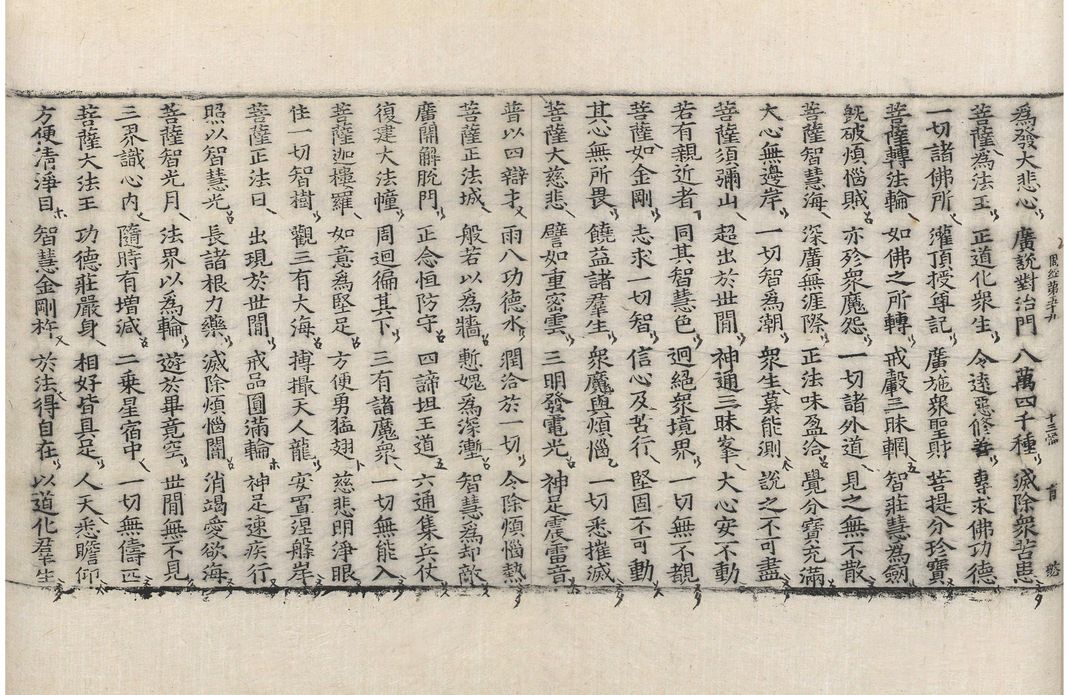 為發大悲心 廣說對治門 八萬四千種 滅除衆苦患
周經第五十九 十三張 育
菩薩為法王 正道化衆生 令遠惡修善 專求佛功德
一切諸佛所 灌頂授尊記 廣施衆聖財 菩提分珍寶
菩薩轉法輪 如佛之所轉 戒轂三昧輞 智莊慧為劒
旣破煩惱賊 亦殄衆魔怨 一切諸外道 見之無不散
菩薩智慧海 深廣無涯際 正法味盈洽 覺分寶充滿
大心無邊岸 一切智為潮 衆生莫能測 說之不可盡
菩薩須彌山 超出於世間 神通三昧峯 大心安不動
若有親近者 同其智慧色 迥絕衆境界 一切無不覩
菩薩如金剛 志求一切智 信心及苦行 堅固不可動
其心無所畏 饒益諸羣生 衆魔與煩惱 一切悉摧滅
菩薩大慈悲 譬如重密雲 三明發電光 神足震雷音
普以四辯才 雨八功德水 潤洽於一切 令除煩惱熱
菩薩正法城 般若以為牆 慙愧為深塹 智慧為却敵
廣開解脫門 正念恒防守 四諦坦王道 六通集兵仗
復建大法幢 周迴徧其下 三有諸魔衆 一切無能入
菩薩迦樓羅 如意為堅足 方便勇猛翅 慈悲明淨眼
住一切智樹 觀三有大海 搏撮天人龍 安置涅槃岸
菩薩正法日 出現於世間 戒品圓滿輪 神足速疾行
照以智慧光 長諸根力藥 滅除煩惱闇 消竭愛欲海
菩薩智光月 法界以為輪 遊於畢竟空 世間無不見
三界識心內 隨時有增減 二乘星宿中 一切無儔匹
菩薩大法王 功德莊嚴身 相好皆具足 人天悉瞻仰
方便清淨目 智慧金剛杵 於法得自在 以道化羣生